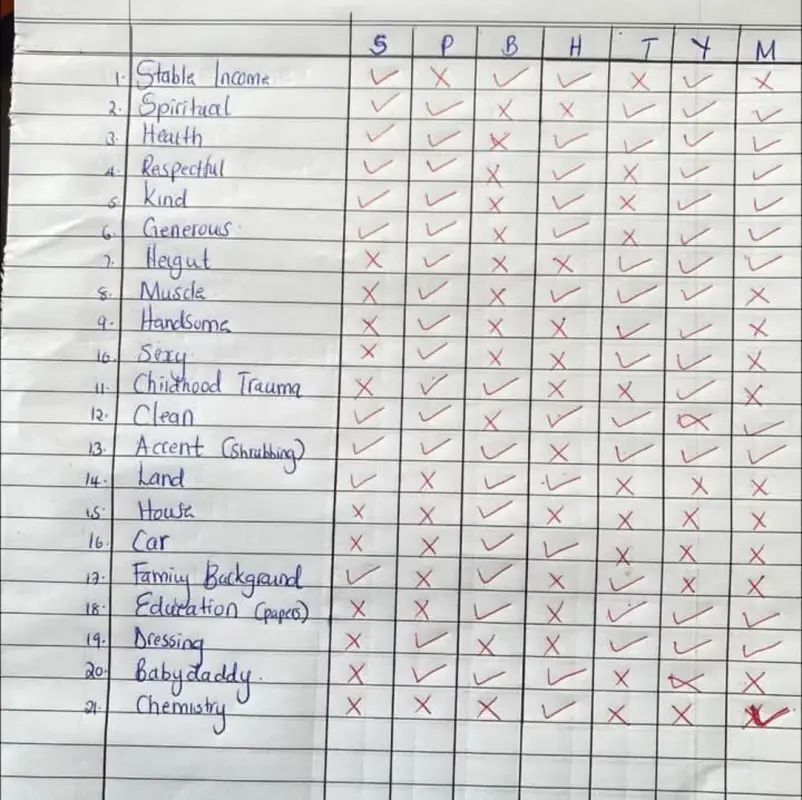 S P B H T Y M
1. Stable Income ✓ ✗ ✓ ✓ ✗ ✓ ✗
2. Spiritual ✓ ✓ ✗ ✗ ✓ ✓ ✓
3. Health ✓ ✓ ✗ ✓ ✓ ✓ ✓
4. Respectful ✓ ✓ ✗ ✓ ✗ ✓ ✓
5. Kind ✓ ✓ ✗ ✓ ✗ ✓ ✓
6. Generous. ✓ ✓ ✗ ✓ ✗ ✓ ✓
7. Heigut ✗ ✓ ✗ ✗ ✓ ✓ ✓
8. Muscle ✗ ✓ ✗ ✓ ✓ ✓ ✗
9. Handsome ✗ ✓ ✗ ✗ ✓ ✓ ✗
10. Sexy ✗ ✓ ✗ ✗ ✓ ✓ ✗
11. Childhood Trauma ✗ ✓ ✓ ✗ ✗ ✓ ✗
12. Clean ✓ ✓ ✗ ✓ ✓ ✗ ✓
13. Accent (Shrubbing) ✓ ✓ ✓ ✗ ✓ ✓ ✓
14. Land ✓ ✗ ✓ ✓ ✗ ✗ ✗
15. House ✗ ✗ ✓ ✗ ✗ ✗ ✗
16. Car ✗ ✗ ✓ ✓ ✗ ✗ ✗
17. Family Background ✓ ✗ ✓ ✗ ✓ ✗ ✗
18. Education (papers) ✗ ✗ ✓ ✗ ✓ ✓ ✓
19. Dressing ✗ ✓ ✗ ✗ ✓ ✓ ✓
20. Babydaddy. ✗ ✓ ✓ ✓ ✗ ✗ ✗
21. Chemistry ✗ ✗ ✗ ✓ ✗ ✗ ✓